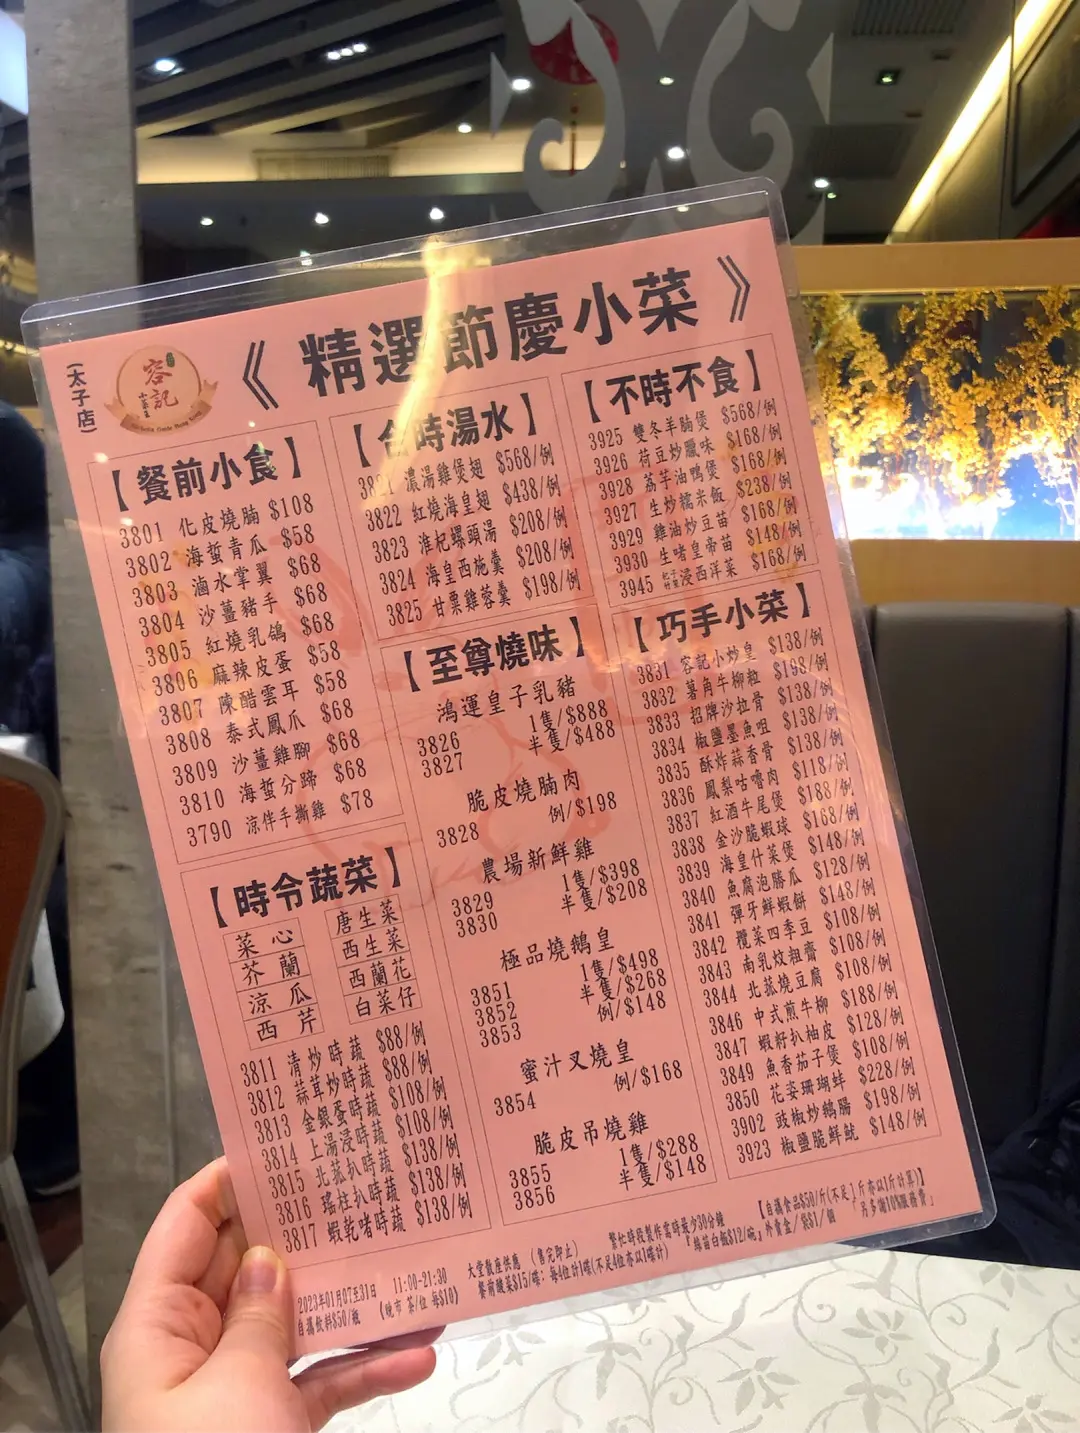 (太子店)
容記
小菜王
《精選節慶小菜》
【餐前小食】
3801 化皮燒腩 $108
3802 海蜇青瓜 $58
3803 滷水掌翼 $68
3804 沙薑豬手 $68
3805 紅燒乳鴿 $68
3806 麻辣皮蛋 $58
3807 陳醋雲耳 $58
3808 泰式鳳爪 $68
3809 沙薑雞腳 $68
3810 海蜇分蹄 $68
3790 涼伴手撕雞 $78
【時令蔬菜】
菜心 唐生菜
芥蘭 西生菜
涼瓜 西蘭花
西芹 白菜仔
3811 清炒時蔬 $88/例
3812 蒜茸炒時蔬 $88/例
3813 金銀蛋時蔬 $108/例
3814 上湯浸時蔬 $108/例
3815 北菰扒時蔬 $138/例
3816 瑤柱扒時蔬 $138/例
3817 蝦乾啫時蔬 $138/例
【合時湯水】
3821 濃湯雞煲翅 $568/例
3822 紅燒海皇翅 $438/例
3823 淮杞螺頭湯 $208/例
3824 海皇西施羹 $208/例
3825 甘粟雞蓉羹 $198/例
【至尊燒味】
鴻運皇子乳豬
3826 1隻/$888
3827 半隻/$488
脆皮燒腩肉
3828 例/$198
農場新鮮雞
3829 1隻/$398
3830 半隻/$208
極品燒鵝皇
3851 1隻/$498
3852 半隻/$268
3853 例/$148
蜜汁叉燒皇
3854 例/$168
脆皮吊燒雞
3855 1隻/$288
3856 半隻/$148
【不時不食】
3925 雙冬羊腩煲 $568/例
3926 荷豆炒臘味 $168/例
3928 荔芋油鴨煲 $168/例
3927 生炒糯米飯 $238/例
3929 雞油炒豆苗 $168/例
3930 生啫皇帝苗 $148/例
3945 浸西洋菜 $168/例
【巧手小菜】
3831 容記小炒皇 $138/例
3832 薯角牛柳粒 $198/例
3833 招牌沙拉骨 $138/例
3834 椒鹽墨魚咀 $138/例
3835 酥炸蒜香骨 $138/例
3836 鳳梨咕嚕肉 $118/例
3837 紅酒牛尾煲 $188/例
3838 金沙脆蝦球 $168/例
3839 海皇什菜煲 $148/例
3840 魚腐泡勝瓜 $128/例
3841 彈牙鮮蝦餅 $148/例
3842 欖菜四季豆 $108/例
3843 南乳炆粗齋 $108/例
3844 北菰燒豆腐 $108/例
3846 中式煎牛柳 $188/例
3847 蝦籽扒柚皮 $128/例
3849 魚香茄子煲 $108/例
3850 花姿珊瑚蚌 $228/例
3902 豉椒炒鵝腸 $198/例
3923 椒鹽脆鮮魷 $148/例
2023年01月07至31日 11:00-21:30 大堂散座供應 (售完即止) 繁忙時段製作需時最少30分鐘 【自攜食品$50/斤(不足1斤亦以1斤計算)】
自攜飲料$50/瓶 《晚市 茶/位 每$10》 餐前酸菜$15/碟:每4位計1碟(不足4位亦以1碟計) 『絲苗白飯$12/碗』外賣盒/袋$1/個 『另多謝10%服務費』